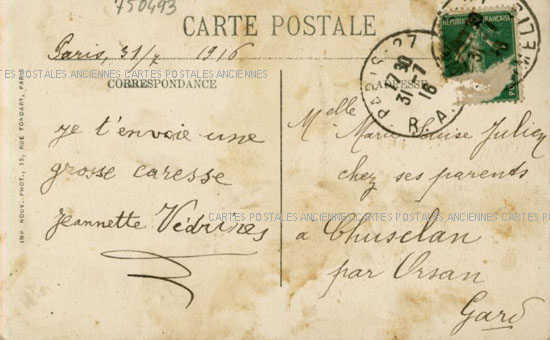 750493
CARTE POSTALE
Paris, 31/7 1916
CARTES POSTALES ANCIENNES CARTES POSTALES ANCIENNES CARTES POSTALES ANCIENNES
CORRESPONDANCE
ADRESSE
PARIS-27
17 30
31 -7
16
R. A
RÉPUBLIQUE FRANÇAISE
je t'envoie une
grosse caresse
Jeannette Védrines
Melle Marie Louise Julien
chez ses parents
CARTES POSTALES ANCIENNES CARTES POSTALES ANCIENNES CARTES POSTALES ANCIENNES CARTES
à Chusclan
par Orsan
Gard
IMP. NOUV. PHOT., 15, RUE FONDARY, PARIS